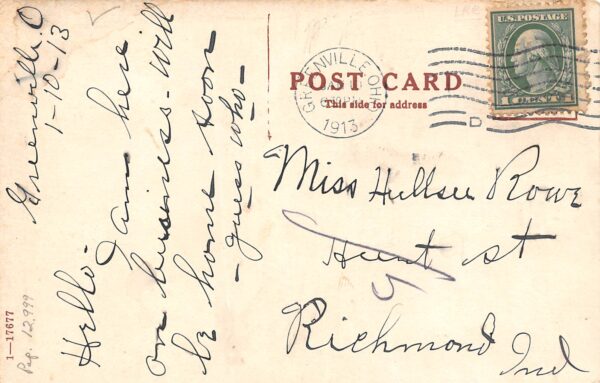 Greenville. O
1-10-13
Hello-
I am here
on business. Will
be home soon
- guess who -
POST CARD
This side for address
GREENVILLE OHIO
1913
U.S. POSTAGE
Miss Hellsee Rowe
Hunt st
Richmond Ind
1—17677